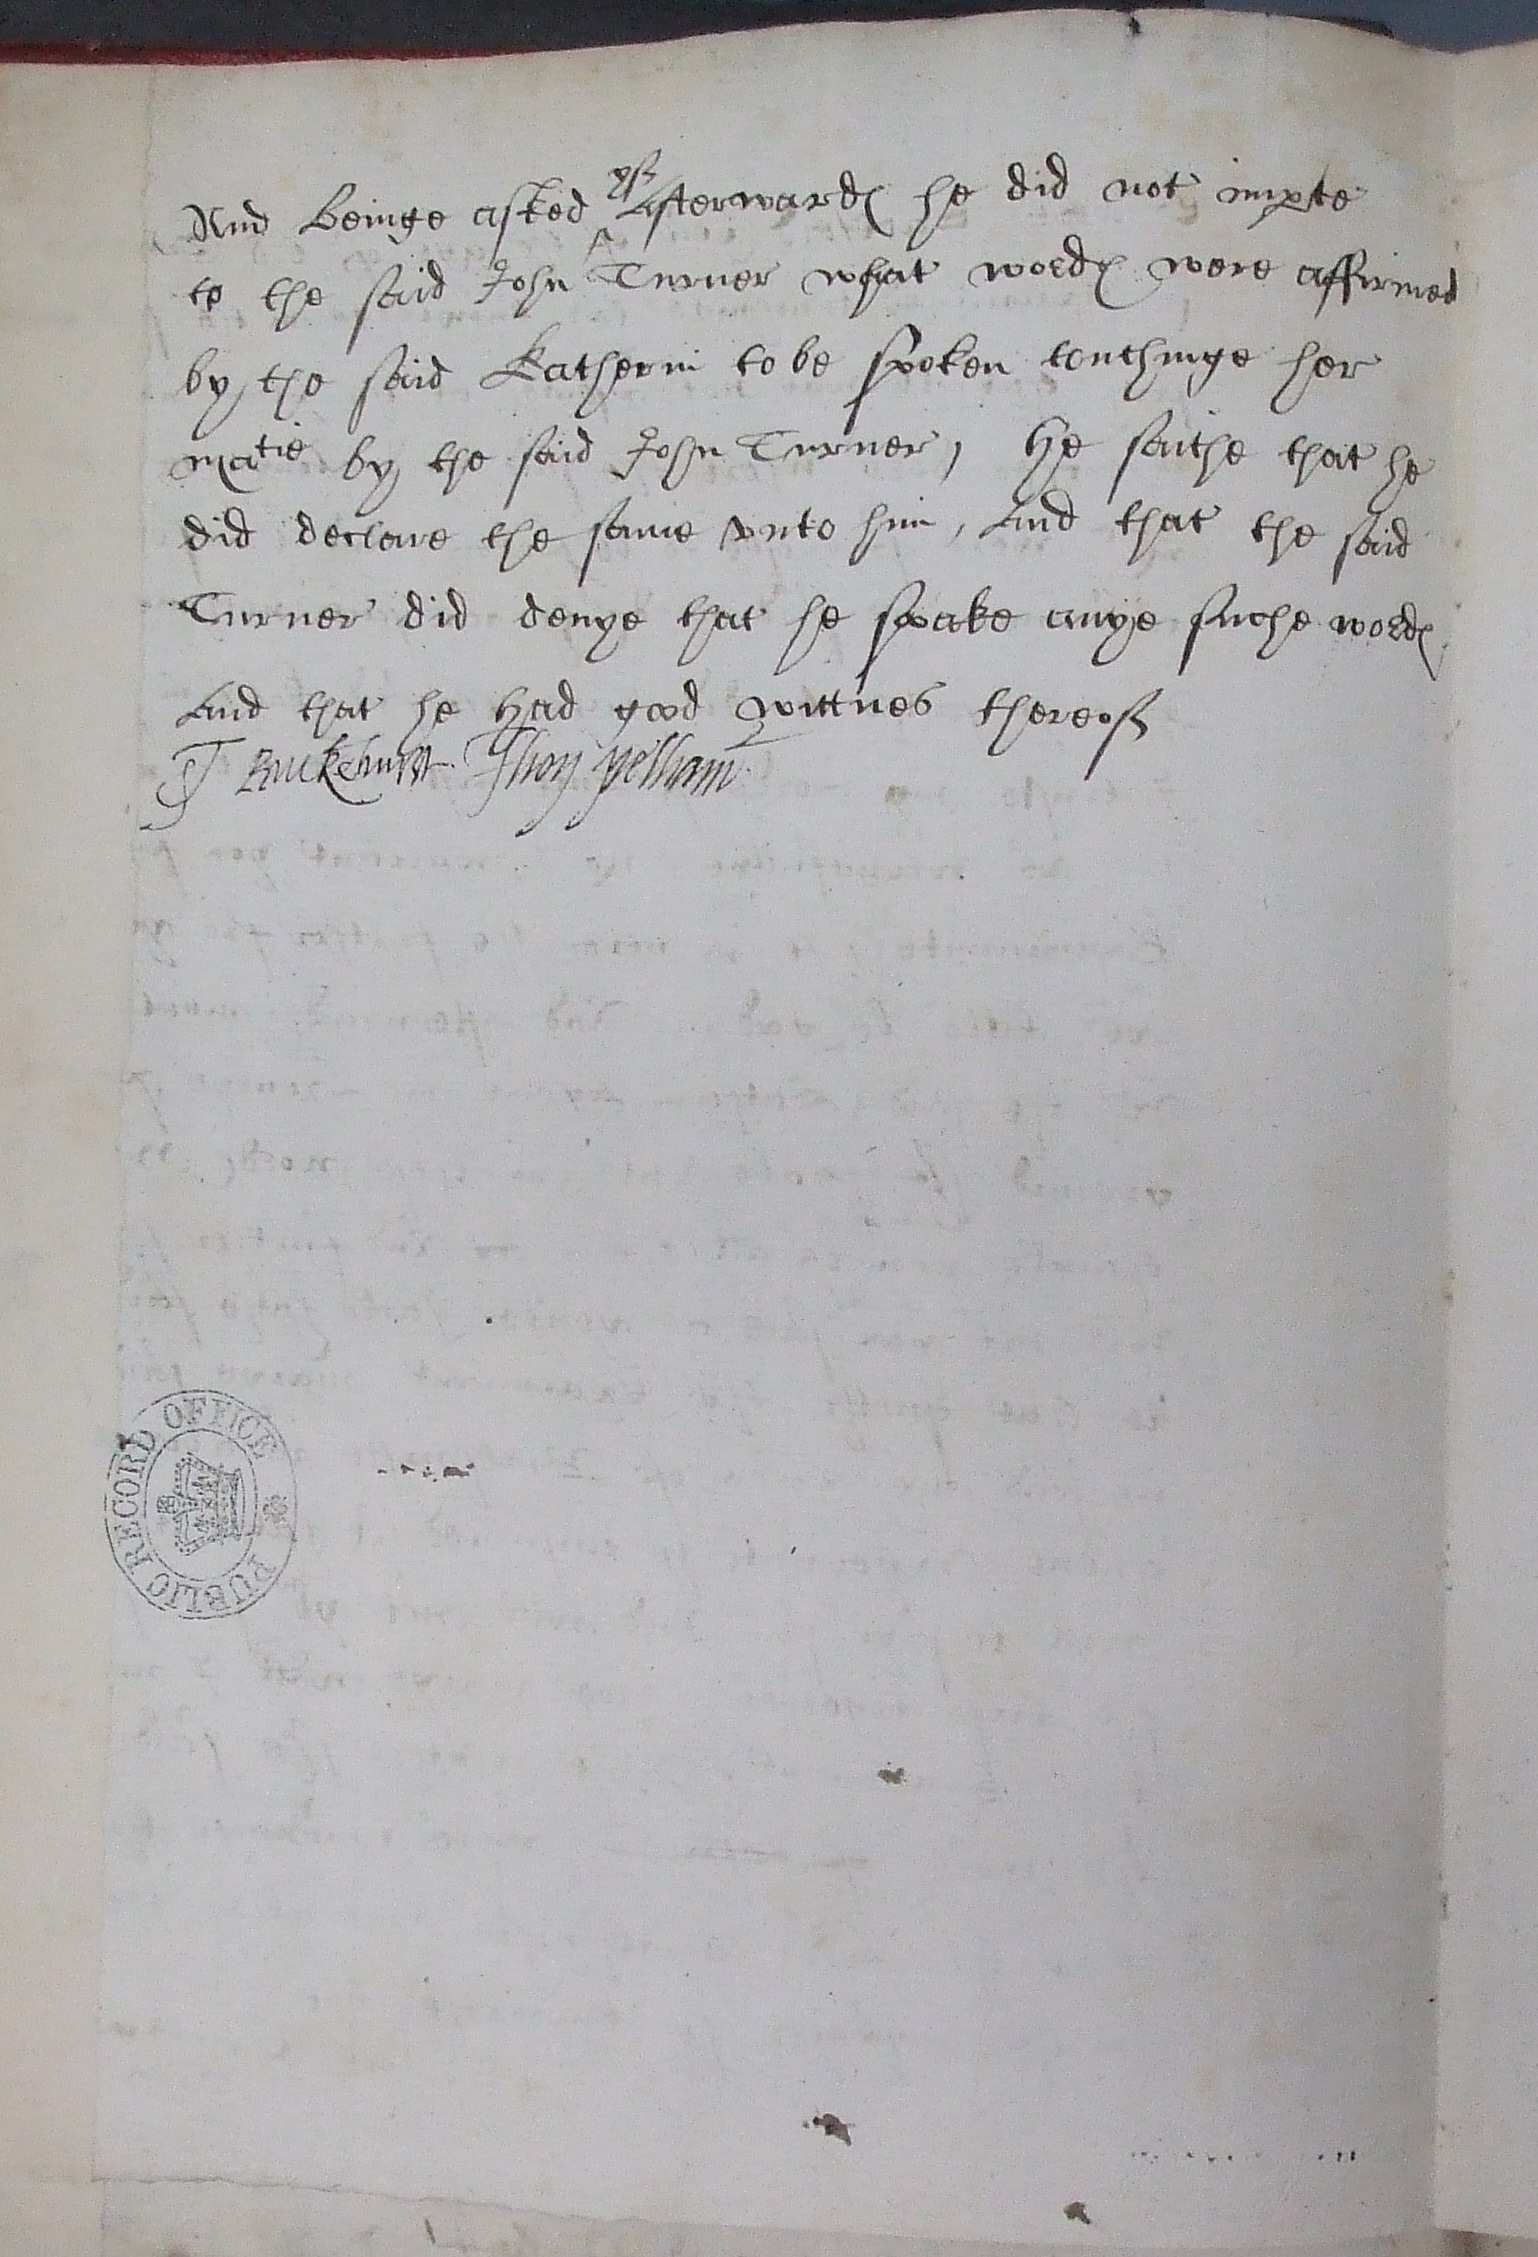 yf
And beinge asked ^ Afterward℮ he did not imp̱te
to the said John Turner what word℮ were affirmed
by the said Katherin to be spoken touchinge her
ma^tie by the said John Turner, He saithe that he
did declare the same vnto him, And that the said
Turner did denye that he spake anye suche word℮
And that he had good wittnes thereof
T Buckehurst. Thoṃ pelham
PUBLIC RECORD OFFICE